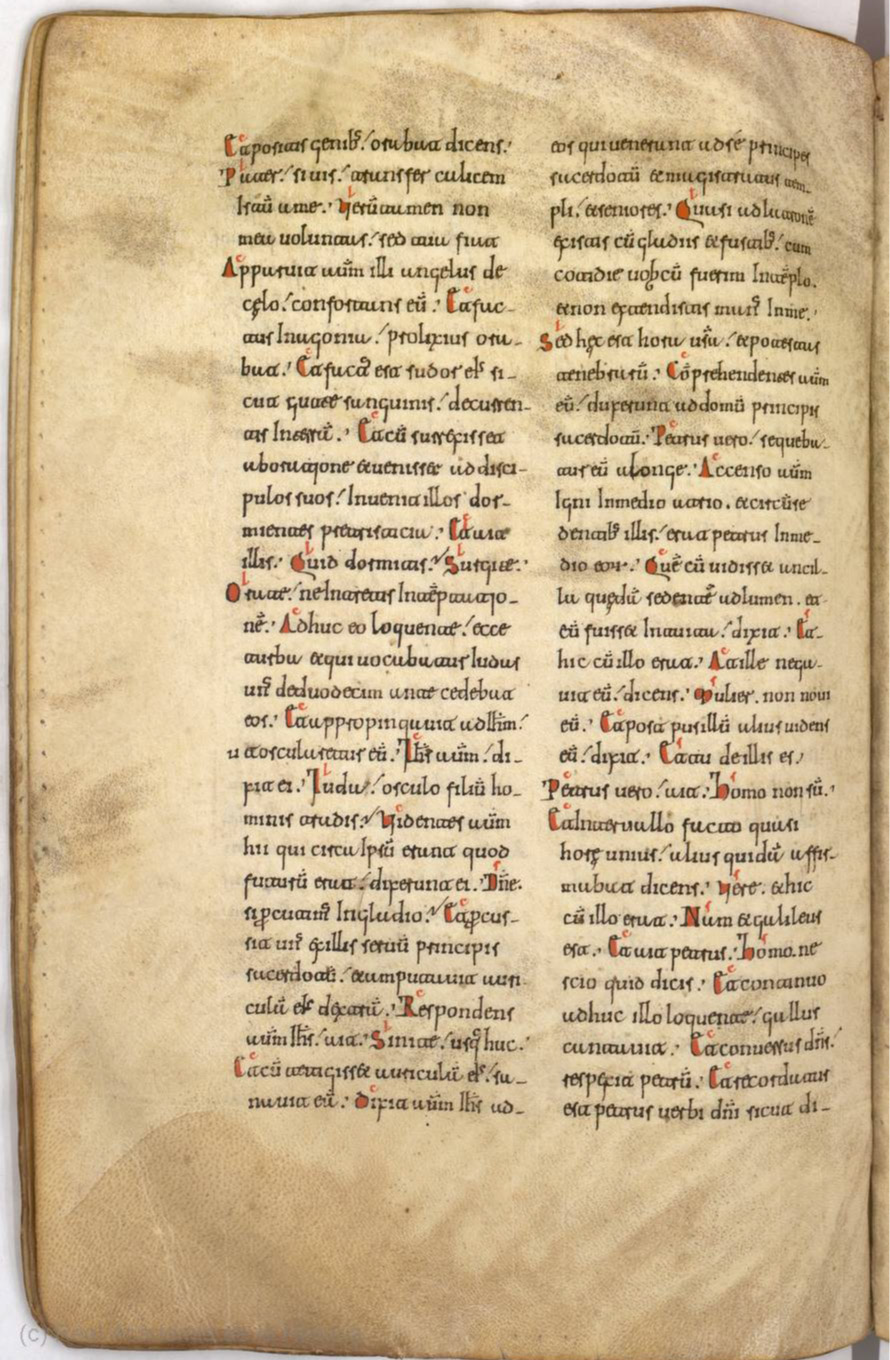 Et positis genib; orabat dicens.
Pater. si uis. transfer calicem
Istū a me. Uerūtamen non
mea uoluntas. sed tua fiat
Apparuit aūm illi angelus de
cęlo. confortans eū. Et fac-
tus In agonia. prolixius ora-
bat. Et factus est sudor eiꝰ si-
cut gutte sanguinis. decurren-
tis In terrā. Et cū surrexisset
ab oratione & uenisset ad disci-
pulos suos. Inuenit illos dor-
mientes pre tristitia. Et ait
illis. Quid dormitis. Surgite.
Orate. ne Intretis In tēptatio-
nē. Adhuc eo loquente. ecce
turba & qui uocabatur Iudas
unꝰ de duodecim antecedebat
eos. Et appropinquauit ad Ihm̄.
ut oscularetur eū. Ihs̄ aūm. di-
xit ei. Iuda. osculo filiū ho-
minis tradis. Uidentes aūm
hii qui circa Ipsū erant quod
futurū erat. dixerunt ei. Dn̄e.
si ꝑcutimꝰ In gladio. Et ꝑcus-
sit unꝰ ex illis seruū principis
sacerdotū. & amputauit auri-
culā eiꝰ dexterā. Respondens
aūm Ihs̄. ait. Sinite. usq; huc.
Et cū tetigisset auriculā eiꝰ. sa-
nauit eū. Dixit aūm Ihs̄ ad-
eos qui uenerunt ad se principes
sacerdotū & magistratus tem-
pli. & seniores. Quasi ad latronē
existis cū gladiis & fustib; cum
cotidie uobcū fuerim In tēplo.
& non extendistis manꝰ In me.
Sed hęc est hora urā. & potestas
tenebrarū. Cōprehendentes aūm
eū. duxerunt ad domū principis
sacerdotū. Petrus uero. sequeba-
tur eū a longe. Accenso aūm
Igni In medio atrio. & circūse
dentib; illis. erat petrus In me-
dio eorꝰ. Quē cū uidisset ancil-
la quędā sedentē ad lumen. et
eū fuisset Intuita. dixit. Et
hic cū illo erat. At ille nega-
uit eū. dicens. Mulier. non noui
eū. Et post pusillū alius uidens
eū. dixit. Et tu de illis es.
Petrus uero. ait. Homo non sū.
Et Interuallo facto quasi
horę unius. alius quidā affir-
mabat dicens. Uere. & hic
cū illo erat. Nam & galileus
est. Et ait petrus. Homo. ne
scio quid dicis. Et continuo
adhuc illo loquente. gallus
cantauit. Et conuersus dn̄s.
respexit petrū. Et recordatus
est petrus uerbi dn̄i sicut di-
(c)